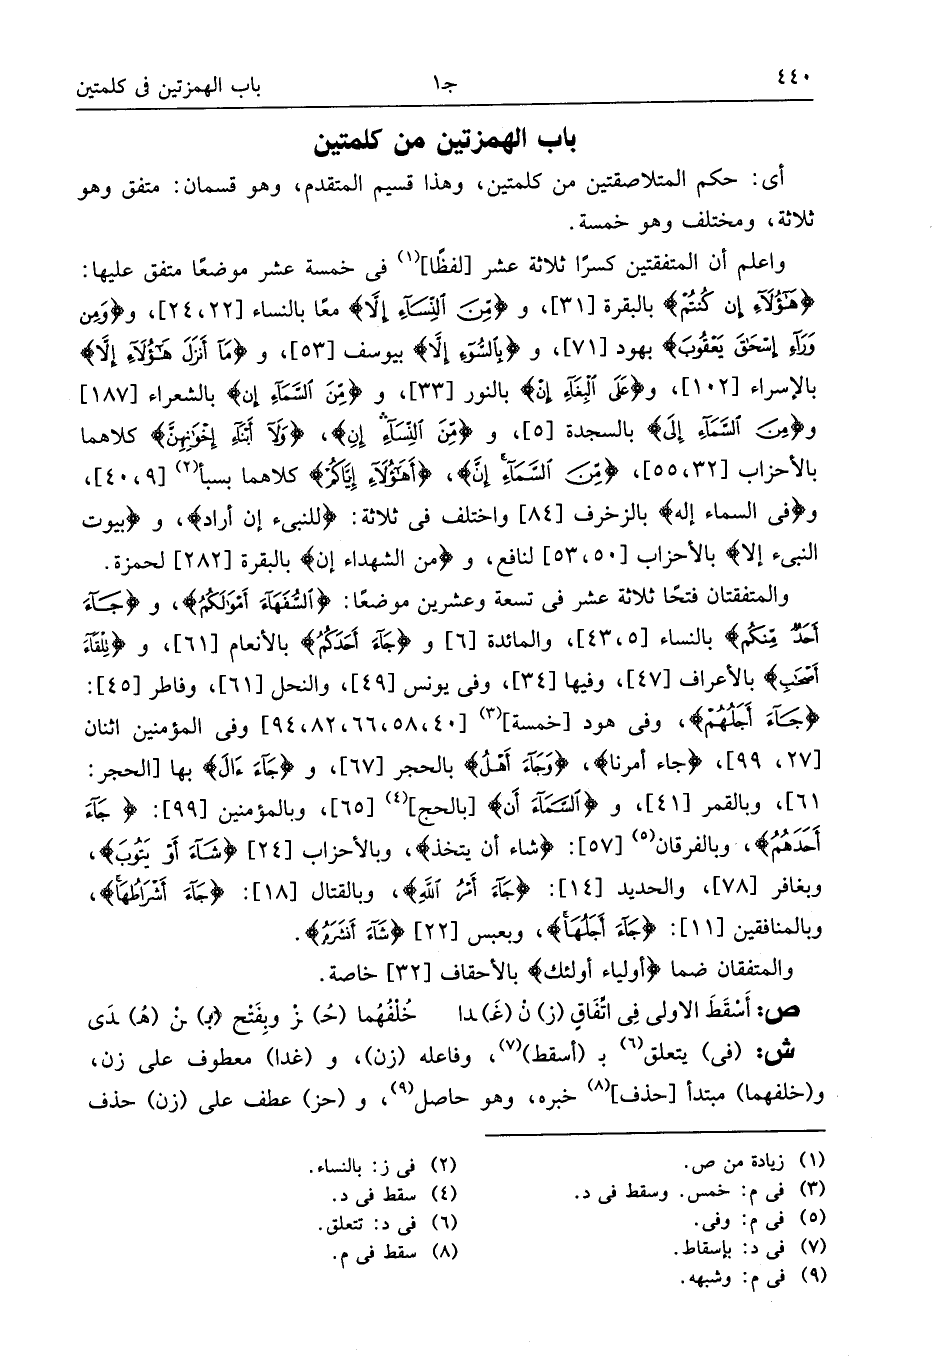 ٤٤٠ جـ١ باب الهمزتين فى كلمتين
باب الهمزتين من كلمتين
أى: حكم المتلاصقتين من كلمتين، وهذا قسيم المتقدم، وهو قسمان: متفق وهو
ثلاثة، ومختلف وهو خمسة.
واعلم أن المتفقتين كسرًا ثلاثة عشر [لفظًا](١) فى خمسة عشر موضعًا متفق عليها:
﴿هَٰٓؤُلَآءِ إِن كُنتُمْ﴾ بالبقرة [٣١]، و ﴿مِّنَ ٱلنِّسَآءِ إِلَّا﴾ معًا بالنساء [٢٢،٢٤]، و﴿وَمِن
وَرَآءِ إِسْحَٰقَ يَعْقُوبَ﴾ بهود [٧١]، و ﴿بِٱلسُّوٓءِ إِلَّا﴾ بيوسف [٥٣]، و ﴿مَآ أَنزَلَ هَٰٓؤُلَآءِ إِلَّا﴾
بالإسراء [١٠٢]، و﴿عَلَى ٱلْبِغَآءِ إِنْ﴾ بالنور [٣٣]، و ﴿مِّنَ ٱلسَّمَآءِ إِن﴾ بالشعراء [١٨٧]
و﴿مِنَ ٱلسَّمَآءِ إِلَى﴾ بالسجدة [٥]، و ﴿مِّنَ ٱلنِّسَآءِۚ إِنِ﴾، ﴿وَلَآ أَبْنَآءِ إِخْوَٰنِهِنَّ﴾ كلاهما
بالأحزاب [٣٢،٥٥]، ﴿مِّنَ ٱلسَّمَآءِۚ إِنَّ﴾، ﴿أَهَٰٓؤُلَآءِ إِيَّاكُمْ﴾ كلاهما بسبأ(٢) [٩،٤٠]،
و﴿فى السماء إله﴾ بالزخرف [٨٤] واختلف فى ثلاثة: ﴿للنبىء إن أراد﴾، و ﴿بيوت
النبىء إلا﴾ بالأحزاب [٥٠،٥٣] لنافع، و ﴿من الشهداء إن﴾ بالبقرة [٢٨٢] لحمزة.
والمتفقتان فتحًا ثلاثة عشر فى تسعة وعشرين موضعًا: ﴿ٱلسُّفَهَآءَ أَمْوَٰلَكُمُ﴾، و ﴿جَآءَ
أَحَدٌ مِّنكُم﴾ بالنساء [٥،٤٣]، والمائدة [٦] و ﴿جَآءَ أَحَدَكُمُ﴾ بالأنعام [٦١]، و ﴿تِلْقَآءَ
أَصْحَٰبِ﴾ بالأعراف [٤٧]، وفيها [٣٤]، وفى يونس [٤٩]، والنحل [٦١]، وفاطر [٤٥]:
﴿جَآءَ أَجَلُهُمْ﴾، وفى هود [خمسة](٣) [٤٠،٥٨،٦٦،٨٢،٩٤] وفى المؤمنين اثنان
[٢٧، ٩٩]، ﴿جاء أمرنا﴾، ﴿وَجَآءَ أَهْلُ﴾ بالحجر [٦٧]، و ﴿جَآءَ ءَالَ﴾ بها [الحجر:
٦١]، وبالقمر [٤١]، و ﴿ٱلسَّمَآءَ أَن﴾ [بالحج](٤) [٦٥]، وبالمؤمنين [٩٩]: ﴿جَآءَ
أَحَدَهُمُ﴾، وبالفرقان(٥) [٥٧]: ﴿شاء أن يتخذ﴾، وبالأحزاب [٢٤] ﴿شَآءَ أَوْ يَتُوبَ﴾،
وبغافر [٧٨]، والحديد [١٤]: ﴿جَآءَ أَمْرُ ٱللَّهِ﴾، وبالقتال [١٨]: ﴿جَآءَ أَشْرَاطُهَاۚ﴾،
وبالمنافقين [١١]: ﴿جَآءَ أَجَلُهَاۚ﴾، وبعبس [٢٢] ﴿شَآءَ أَنشَرَهُ﴾.
والمتفقان ضما ﴿أولياء أولئك﴾ بالأحقاف [٣٢] خاصة.
ص: أَسْقَطَ الاولى فِى اتِّفَاقٍ (ز) نْ (غَ) ـدا خُلْفُهُما (حُ) ـزْ وبِفَتْحٍ (بِـ) ـنْ (هُـ) ـدَى
ش: (فى) يتعلق(٦) بـ (أسقط)(٧)، وفاعله (زن)، و (غدا) معطوف على زن،
و(خلفهما) مبتدأ [حذف](٨) خبره، وهو حاصل(٩)، و (حز) عطف على (زن) حذف
(١) زيادة من ص. (٢) فى ز: بالنساء.
(٣) فى م: خمس. وسقط فى د. (٤) سقط فى د.
(٥) فى م: وفى. (٦) فى د: تتعلق.
(٧) فى د: بإسقاط. (٨) سقط فى م.
(٩) فى م: وشبهه.